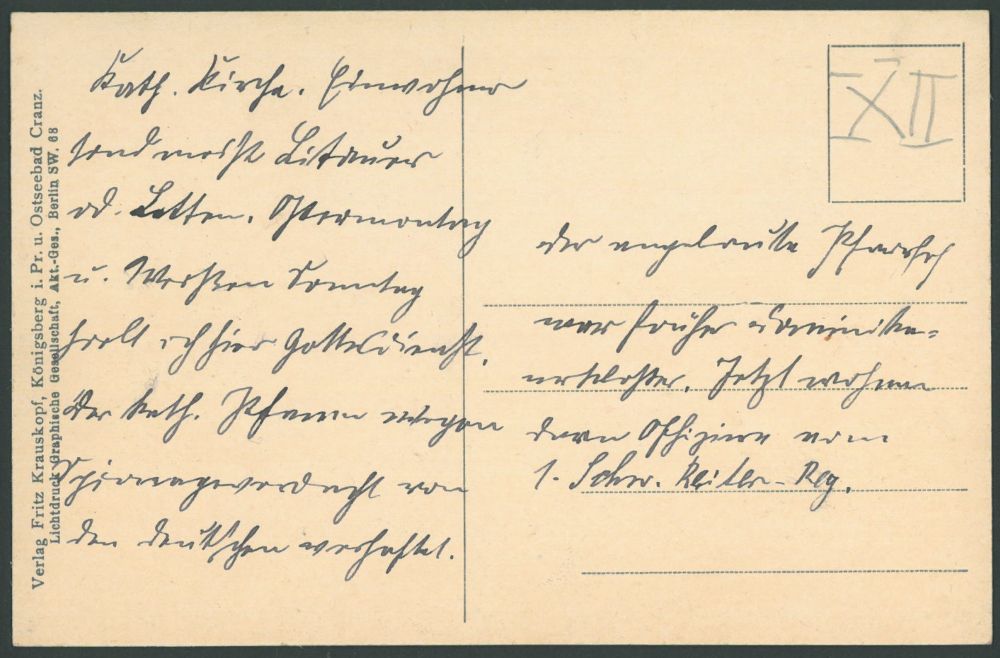 Verlag Fritz Krauskopf, Königsberg i. Pr. u. Ostseebad Cranz.
Lichtdruck Graphische Gesellschaft, Akt.-Ges., Berlin SW. 68
Kath. Kirche. Einwohner
sind meist Litauer
od. Letten. Ostermontag
u. Weißen Sonntag
hielt ich hier Gottesdienst.
Der kath. Pfarrer wegen
Spionageverdacht von
den Deutschen verhaftet.
XII
der angebaute Pfarrhof
war früher Dominika-
nerkloster. Jetzt wohnen
darin Offiziere vom
1. Schw. Reiter-Reg.